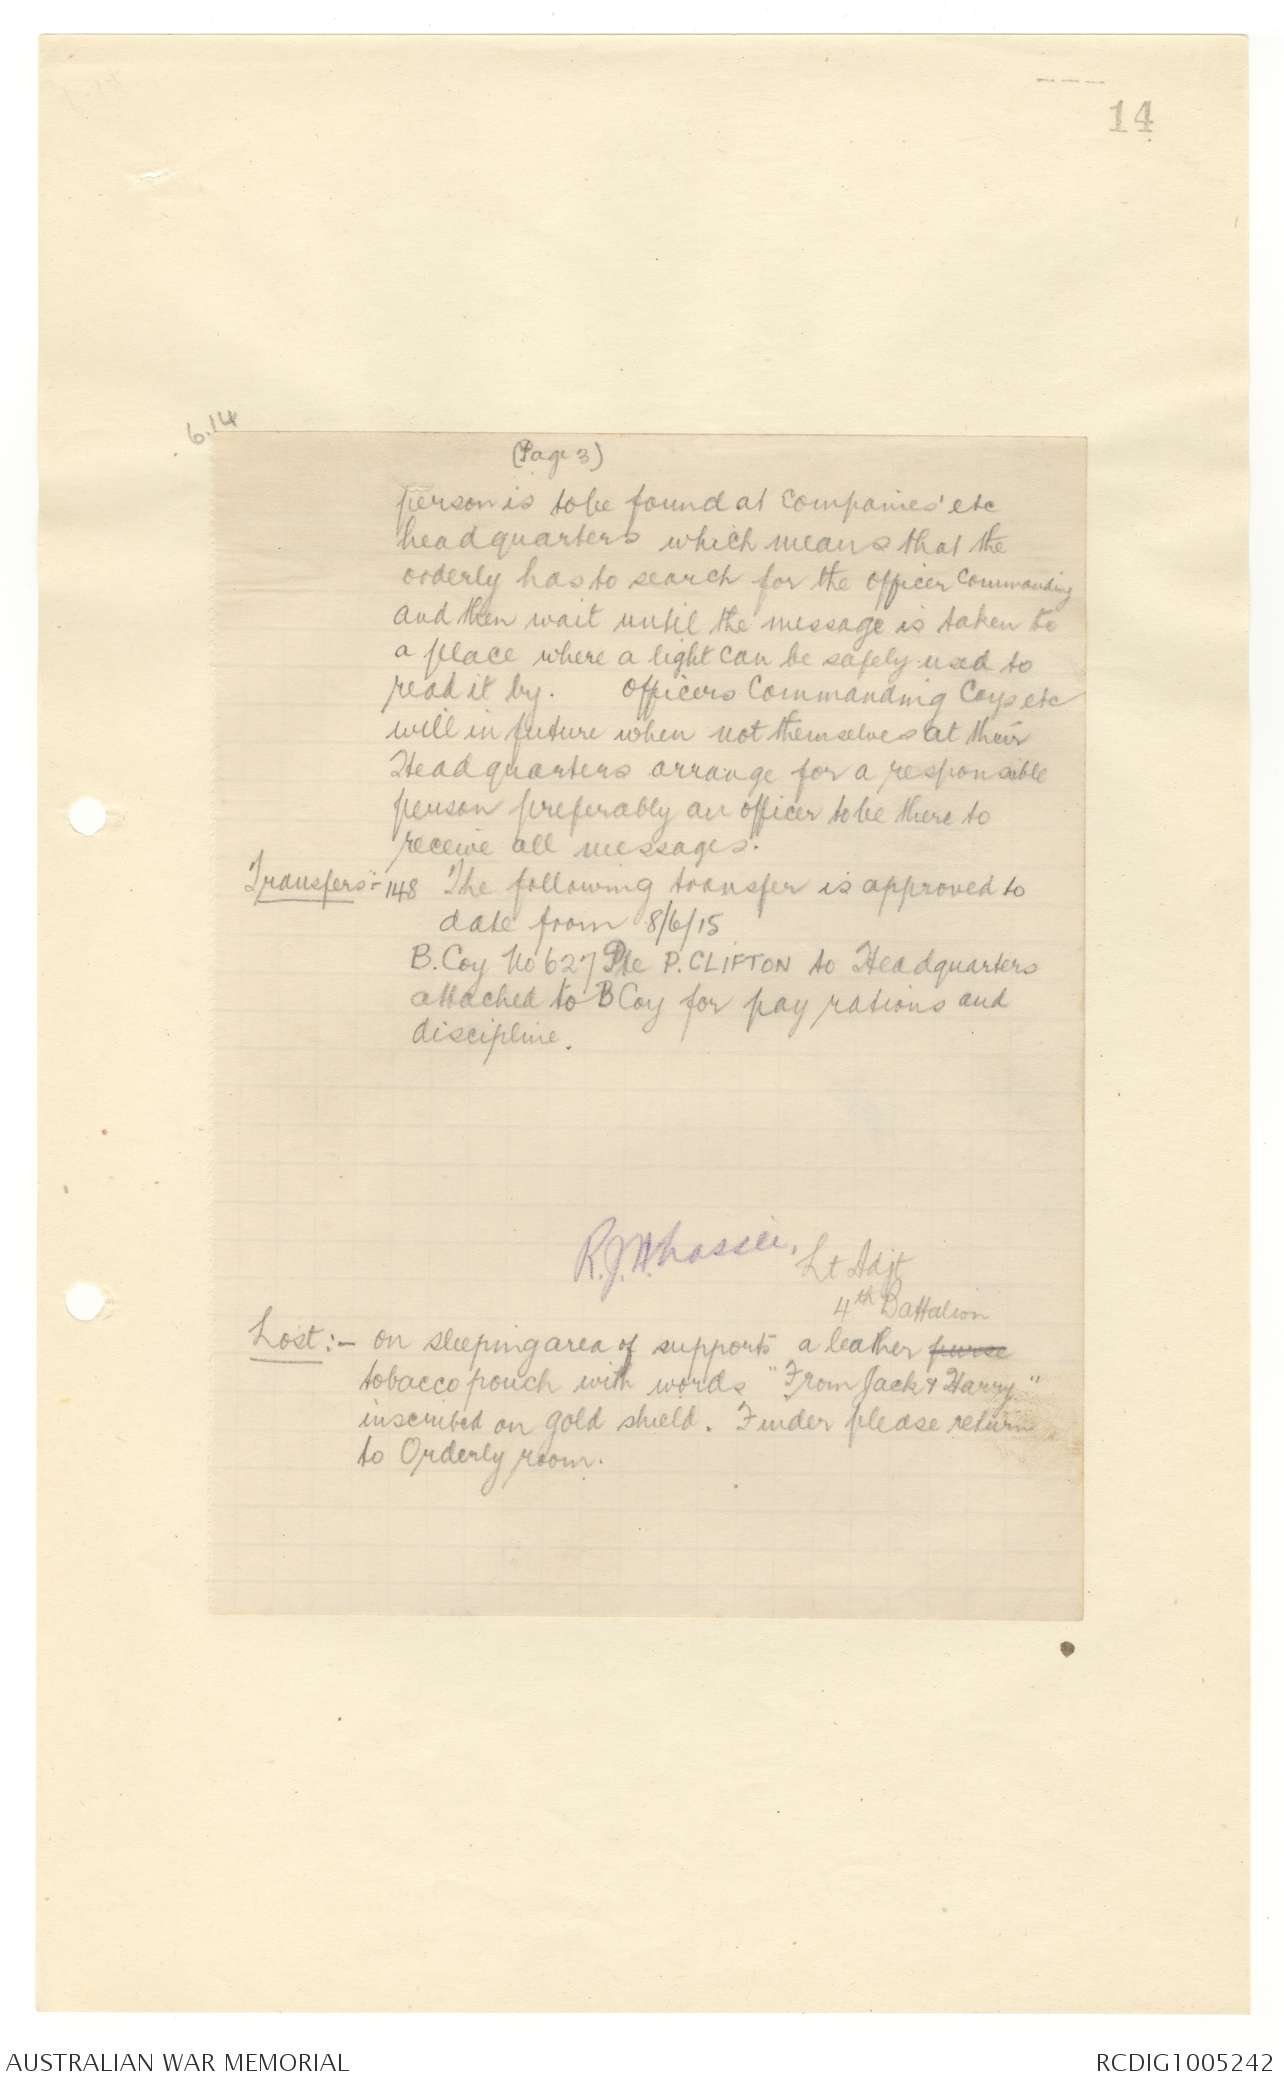 14
6.14
(Page 3)
person is to be found at Companies' etc
headquarters which means that the
orderly has to search for the officer Commanding
and then wait until the message is taken to
a place where a light can be safely used to
read it by. Officers Commanding Coys etc
will in future when not themselves at their
Headquarters arrange for a responsible
person preferably an officer to be there to
receive all messages.
Transfers:- 148 The following transfer is approved to
date from 8/6/15
B. Coy No 627 Pte P. CLIFTON to Headquarters
attached to B Coy for pay rations and
discipline.
R.J.A. Lt Adjt
4th Battalion
Lost:- on sleeping area of supports a leather purse
tobacco pouch with words "From Jack & Harry"
inscribed on gold shield. Finder please return
to Orderly room.
AUSTRALIAN WAR MEMORIAL
RCDIG1005242